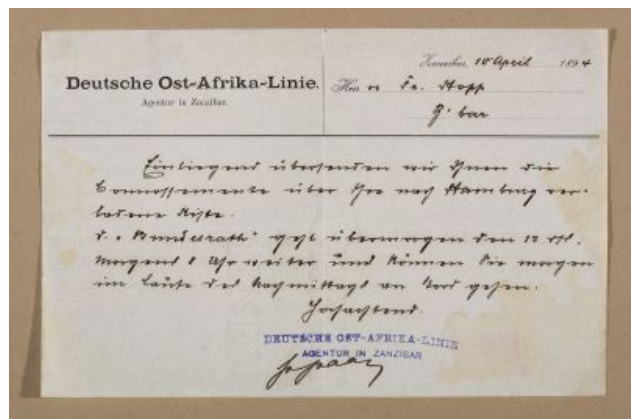 Deutsche Ost-Afrika-Linie.
Agentur in Zanzibar.
Zanzibar, 10 April 1894
Herrn Fr. Stopp
Z'bar
Einliegend übersenden wir Ihnen die
Connossemente über Ihre nach Hamburg ver-
ladene Kiste.
"Bundesrath" geht übermorgen den 12 ds.
Morgens 8 Uhr weiter und können Sie morgen
im Laufe des Nachmittags an Bord gehen.
Hochachtend.
DEUTSCHE OST-AFRIKA-LINIE
AGENTUR IN ZANZIBAR